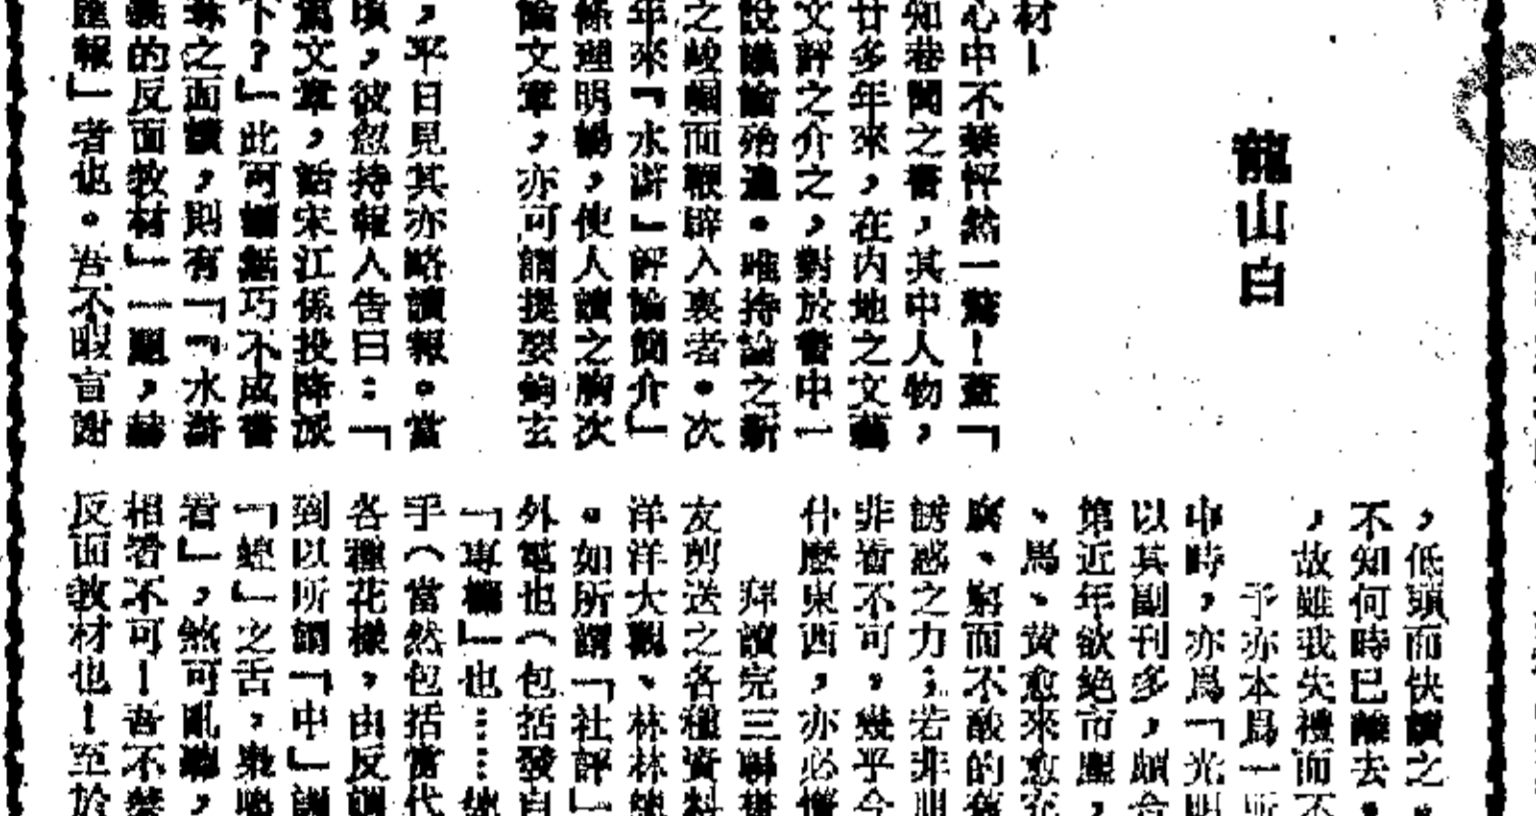 龍山白
材！
心中不禁怦然一驚！蓋「
知巷聞之書，其中人物，
廿多年來，在內地之文藝
文評之介之，對於書中一
設議論殆遍。唯持論之新
之峻嶒而鞭辟入裏者。次
年來「水滸」評論簡介」
條理明暢，使人讀之胸次
論文章，亦可謂提要鈎玄
，平日見其亦略讀報。當
頃，彼忽持報人告曰：「
篇文章，話宋江係投降派
下？」此可謂無巧不成書
之面讀，則有「「水滸
的反面教材」一題，赫
匯報」者也。吾不暇言謝
，低頭而快讀之。
不知何時已離去，
，故雖我失禮而不
予亦本爲一所
中時，亦爲「光明
以其副刊多，頗合
第近年欲絕市廛，
、馬、黃愈來愈充
腐、窮而不酸的舊
誘惑之力；若非明
非看不可，幾乎令
什麼東西，亦必
拜讀完三聯書
友剪送之各種資料
洋洋大觀、林林總
。如所謂「社評」
外電也（包括發自
「專欄」也……
乎（當然包括當代
各種花樣，由反
到以所謂「中」
「」之舌，
看」，煞可亂，
相看不可！吾不禁
反面教材也！至於